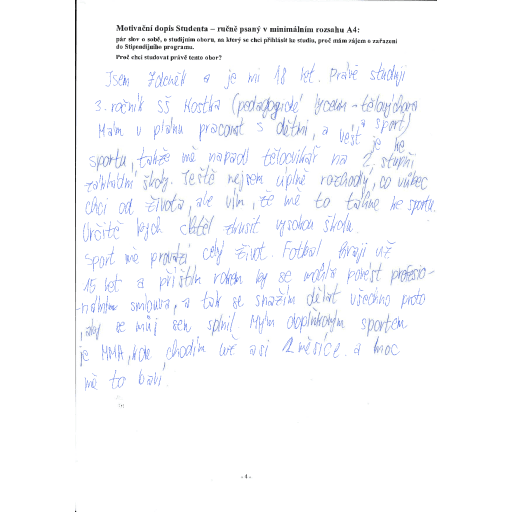 Motivační dopis Studenta – ručně psaný v minimálním rozsahu A4:
pár slov o sobě, o studijním oboru, na který se chci přihlásit ke studiu, proč mám zájem o zařazení
do Stipendijního programu.
Proč chci studovat právě tento obor?
Jsem Zdeněk a je mi 18 let. Právě studuji
3. ročník SŠ Kostka (pedagogické lyceum - tělovýchova
a sport)
Mám v plánu pracovat s dětmi, a vést je ke
sportu, takže mě napadl tělocvikář na 2. stupni
základní školy. Ještě nejsem úplně rozhodlý, co vůbec
chci od života, ale vím, že mě to táhne ke sportu.
Určitě bych chtěl zkusit vysokou školu.
Sport mě provází celý život. Fotbal hraji už
15 let a příštím rokem by se mohla povést profesio-
-nálním smlouva, a tak se snažím dělat všechno proto
, aby se můj sen splnil. Mým doplňkovým sportem
je MMA, kde chodím už asi 2 měsíce a moc
mě to baví
- 4 -